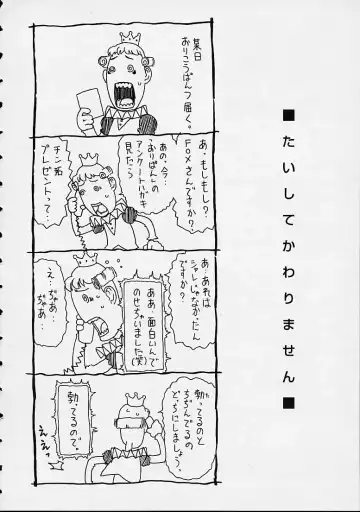 ■たいしてかわりません■
某日
おりこうぱんつ届く。
あ・もしもし？
FOXさんですか？
あの、今…
「おりぱん」の
アンケートハガキ
見たら
チン拓
プレゼントって…
あ…あれは
シャレじゃなかったん
ですか？
ああ、面白いんで
のせちゃいました(笑)
え…ぢゃあ
ぢゃあ…
勃ってるのと
ちぢんでるの
どっちにしましょう。
勃ってるので。
ええっ